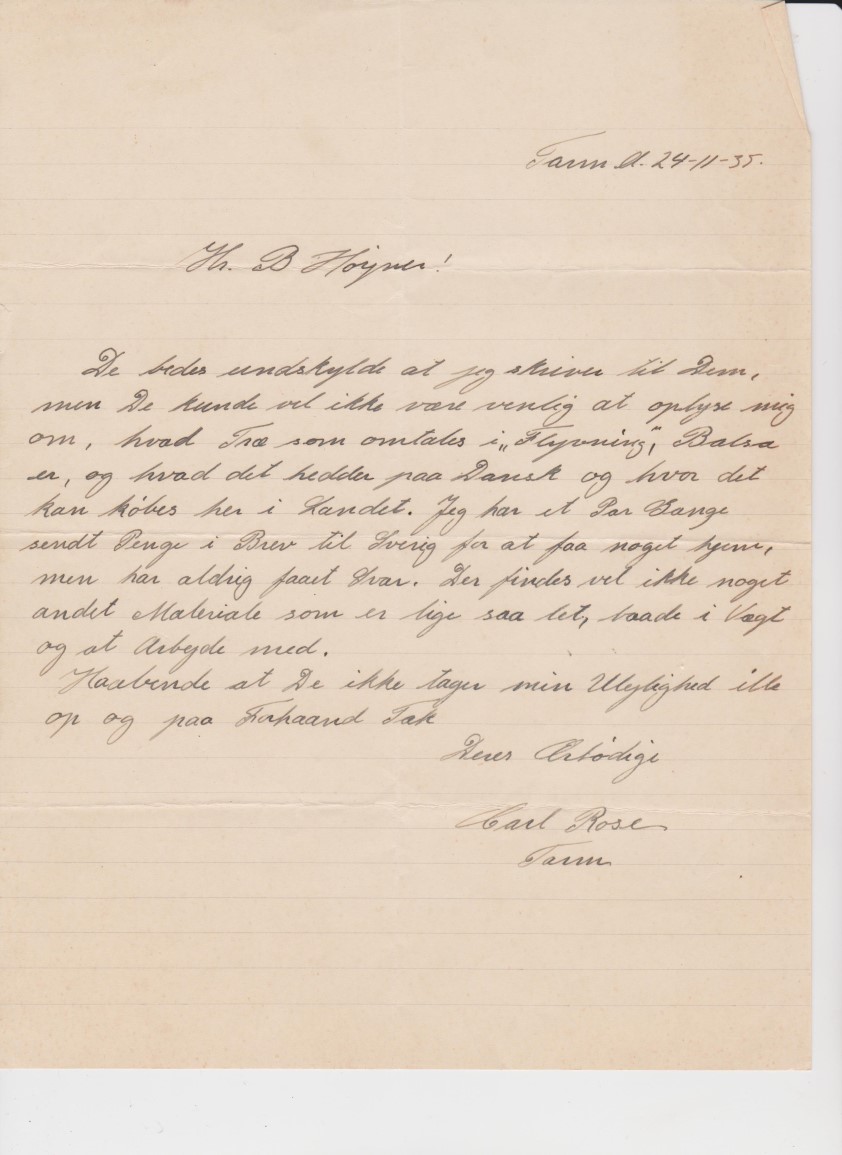 Tarm d. 24-11-35.
Hr. B Höyner!
De bedes undskylde at jeg skriver til Dem,
men De kunde vel ikke være venlig at oplyse mig
om, hvad Træ som omtales i „Flyvning", Balsa
er, og hvad det hedder paa Dansk og hvor det
kan köbes her i Landet. Jeg har et Par Gange
sendt Penge i Brev til Sverig for at faa noget hjem,
men har aldrig faaet Svar. Der findes vel ikke noget
andet Materiale som er lige saa let, baade i Vægt
og at Arbejde med.
Haabende at De ikke tager min Ulejlighed ille
op og paa Forhaand Tak
Deres Ærbödige
Carl Rose
Tarm